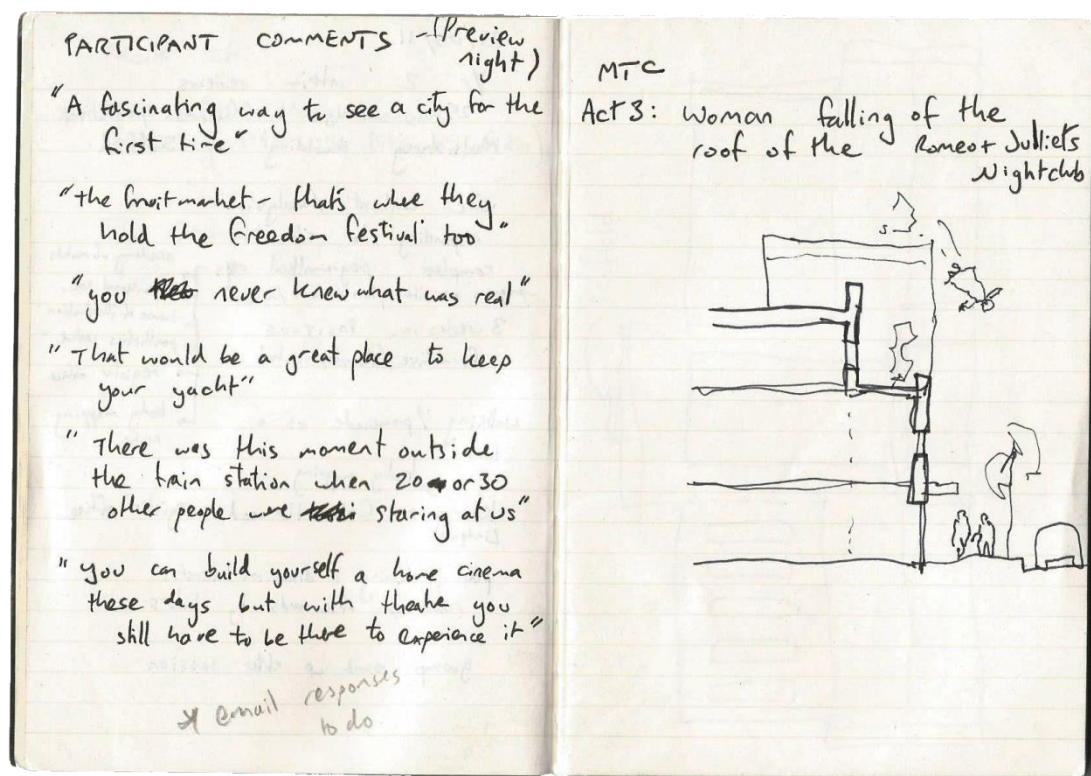 PARTICIPANT COMMENTS - (Preview
night)
"A fascinating way to see a city for the
first time"
"the fruitmarket - that's where they
hold the Freedom festival too"
"you never knew what was real"
"That would be a great place to keep
your yacht"
"There was this moment outside
the train station when 20 or 30
other people were staring at us"
"you can build yourself a home cinema
these days but with theatre you
still have to be there to experience it"
* email responses
to do
MTC
Act 3: Woman falling of the
roof of the Romeo + Julliets
Nightclub